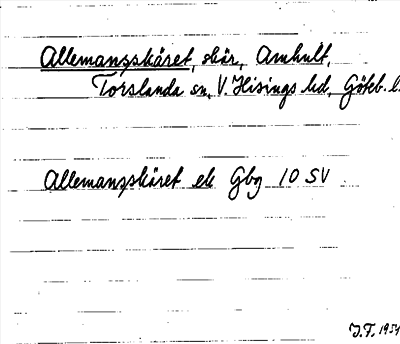 Allemansskäret, skär, Amhult,
Torslanda sn, V. Hisings hd, Göteb. l.
Allemansskäret ek Gbg 10 SV
J.F. 1954